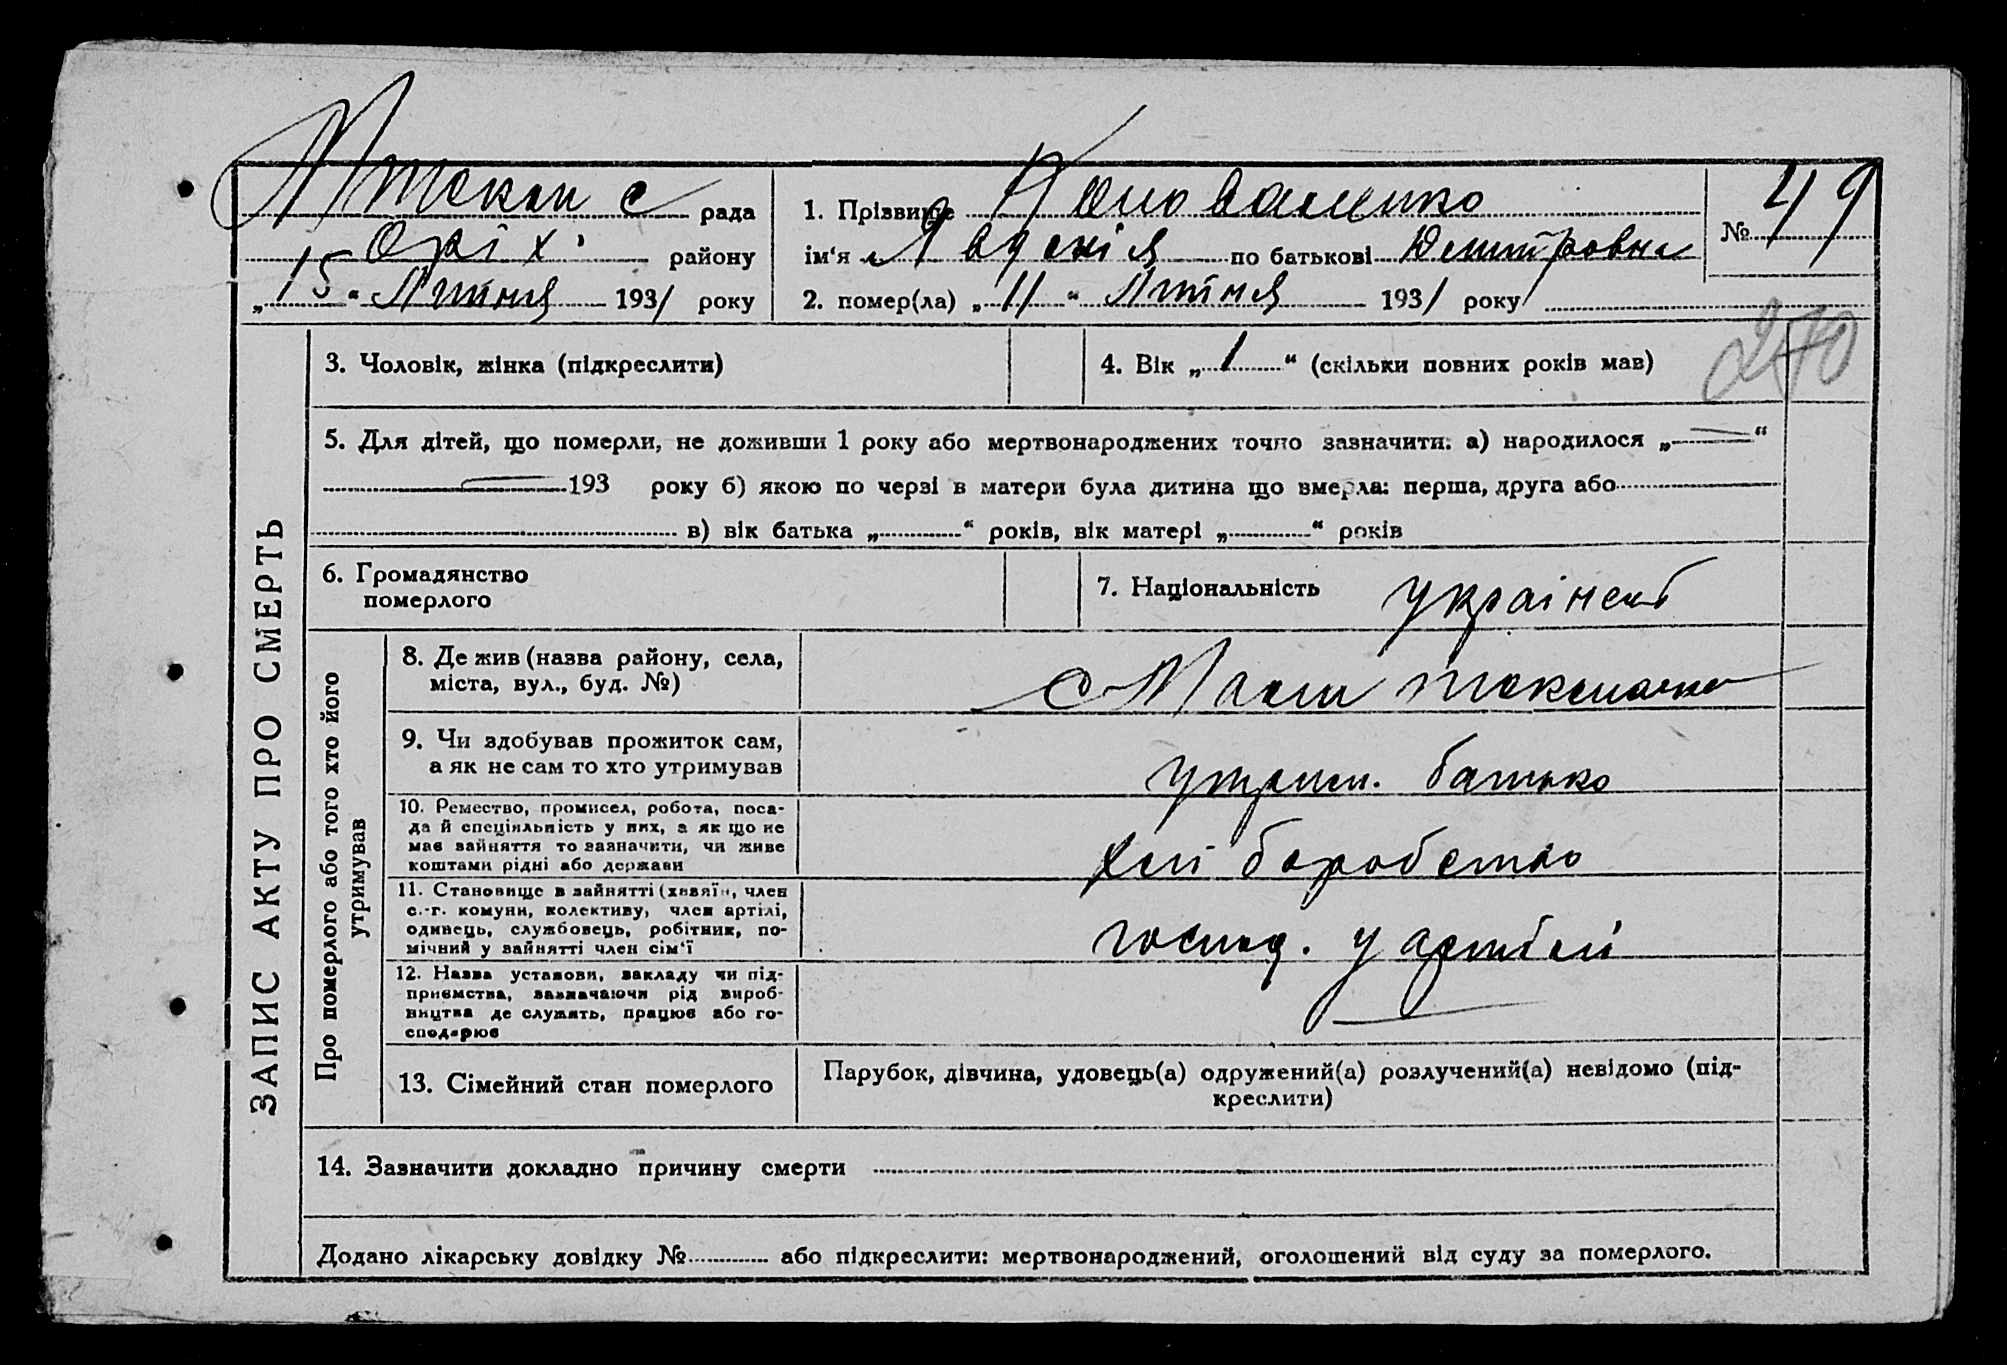 МТокм с рада
Оріх. району
„15“ Липня 1931 року
1. Прізвище Коноваленко
ім‘я Явдокія по батькові Дмитровна
2. помер(ла) „11“ Липня 1931 року
№ 49
270
3. Чоловік, жінка (підкреслити)
4. Вік „1“ (скільки повних років мав)
5. Для дітей, що померли, не доживши 1 року або мертвонароджених точно зазначити: а) народилося „—“
— 193 року б) якою по черзі в матери була дитина що вмерла: перша, друга або
в) вік батька „ “ років, вік матері „ “ років
6. Громадянство
померлого
7. Національність україненб
ЗАПИС АКТУ ПРО СМЕРТЬ
Про померлого або того хто його
утримував
8. Де жив (назва району, села,
міста, вул., буд. №)
с Мали токмачка
9. Чи здобував прожиток сам,
а як не сам то хто утримував
утрим. батько
10. Ремество, промисел, робота, поса-
да й спеціяльність у них, а як що не
має зайняття то зазначити, чи живе
коштами рідні або держави
хлі боробство
11. Становище в зайнятті (хазяїн, член
с.-г. комуни, колективу, член артілі,
одинець, службовець, робітник, по-
мічний у зайнятті член сім‘ї
господ. у артбелі
12. Назва установи, закладу чи під-
приємства, зазначаючи рід вироб-
ництва де служать, працює або го-
сподарює
—
13. Сімейний стан померлого
Парубок, дівчина, удовець(а) одружений(а) розлучений(а) невідомо (під-
креслити)
14. Зазначити докладно причину смерти
Додано лікарську довідку № або підкреслити: мертвонароджений, оголошений від суду за померлого.